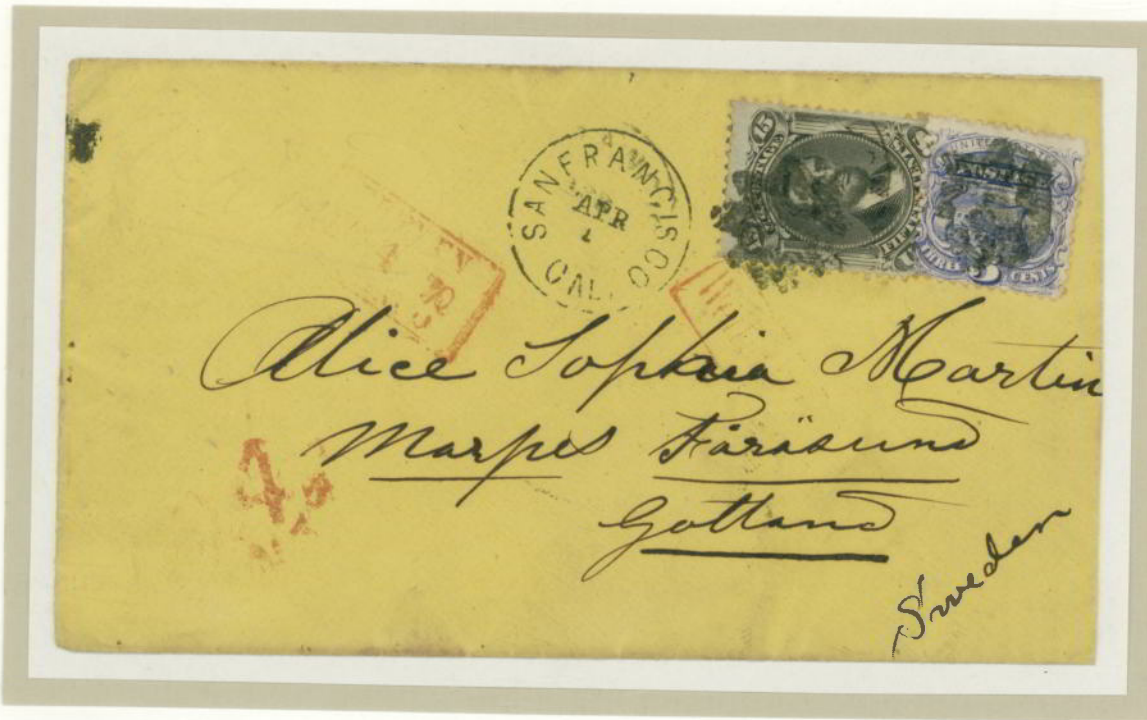 SAN FRANCISCO
APR
1
CAL.
15
THREE 3 CENTS
Alice Sophia Martin
Marpes Fårösund
Gottland
Sweden
4